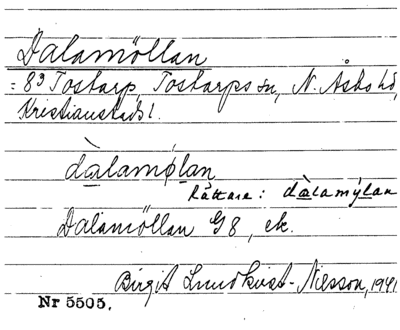 Dalamöllan
= 8³ Tostarp, Tostarps sn, N. Åsbo hd,
Kristianstads l.
dàlamølan
Rättare: dàlamýlan
Dalamöllan G8, ek.
Birgit Lundkvist-Nilsson, 1941
Nr 5505.